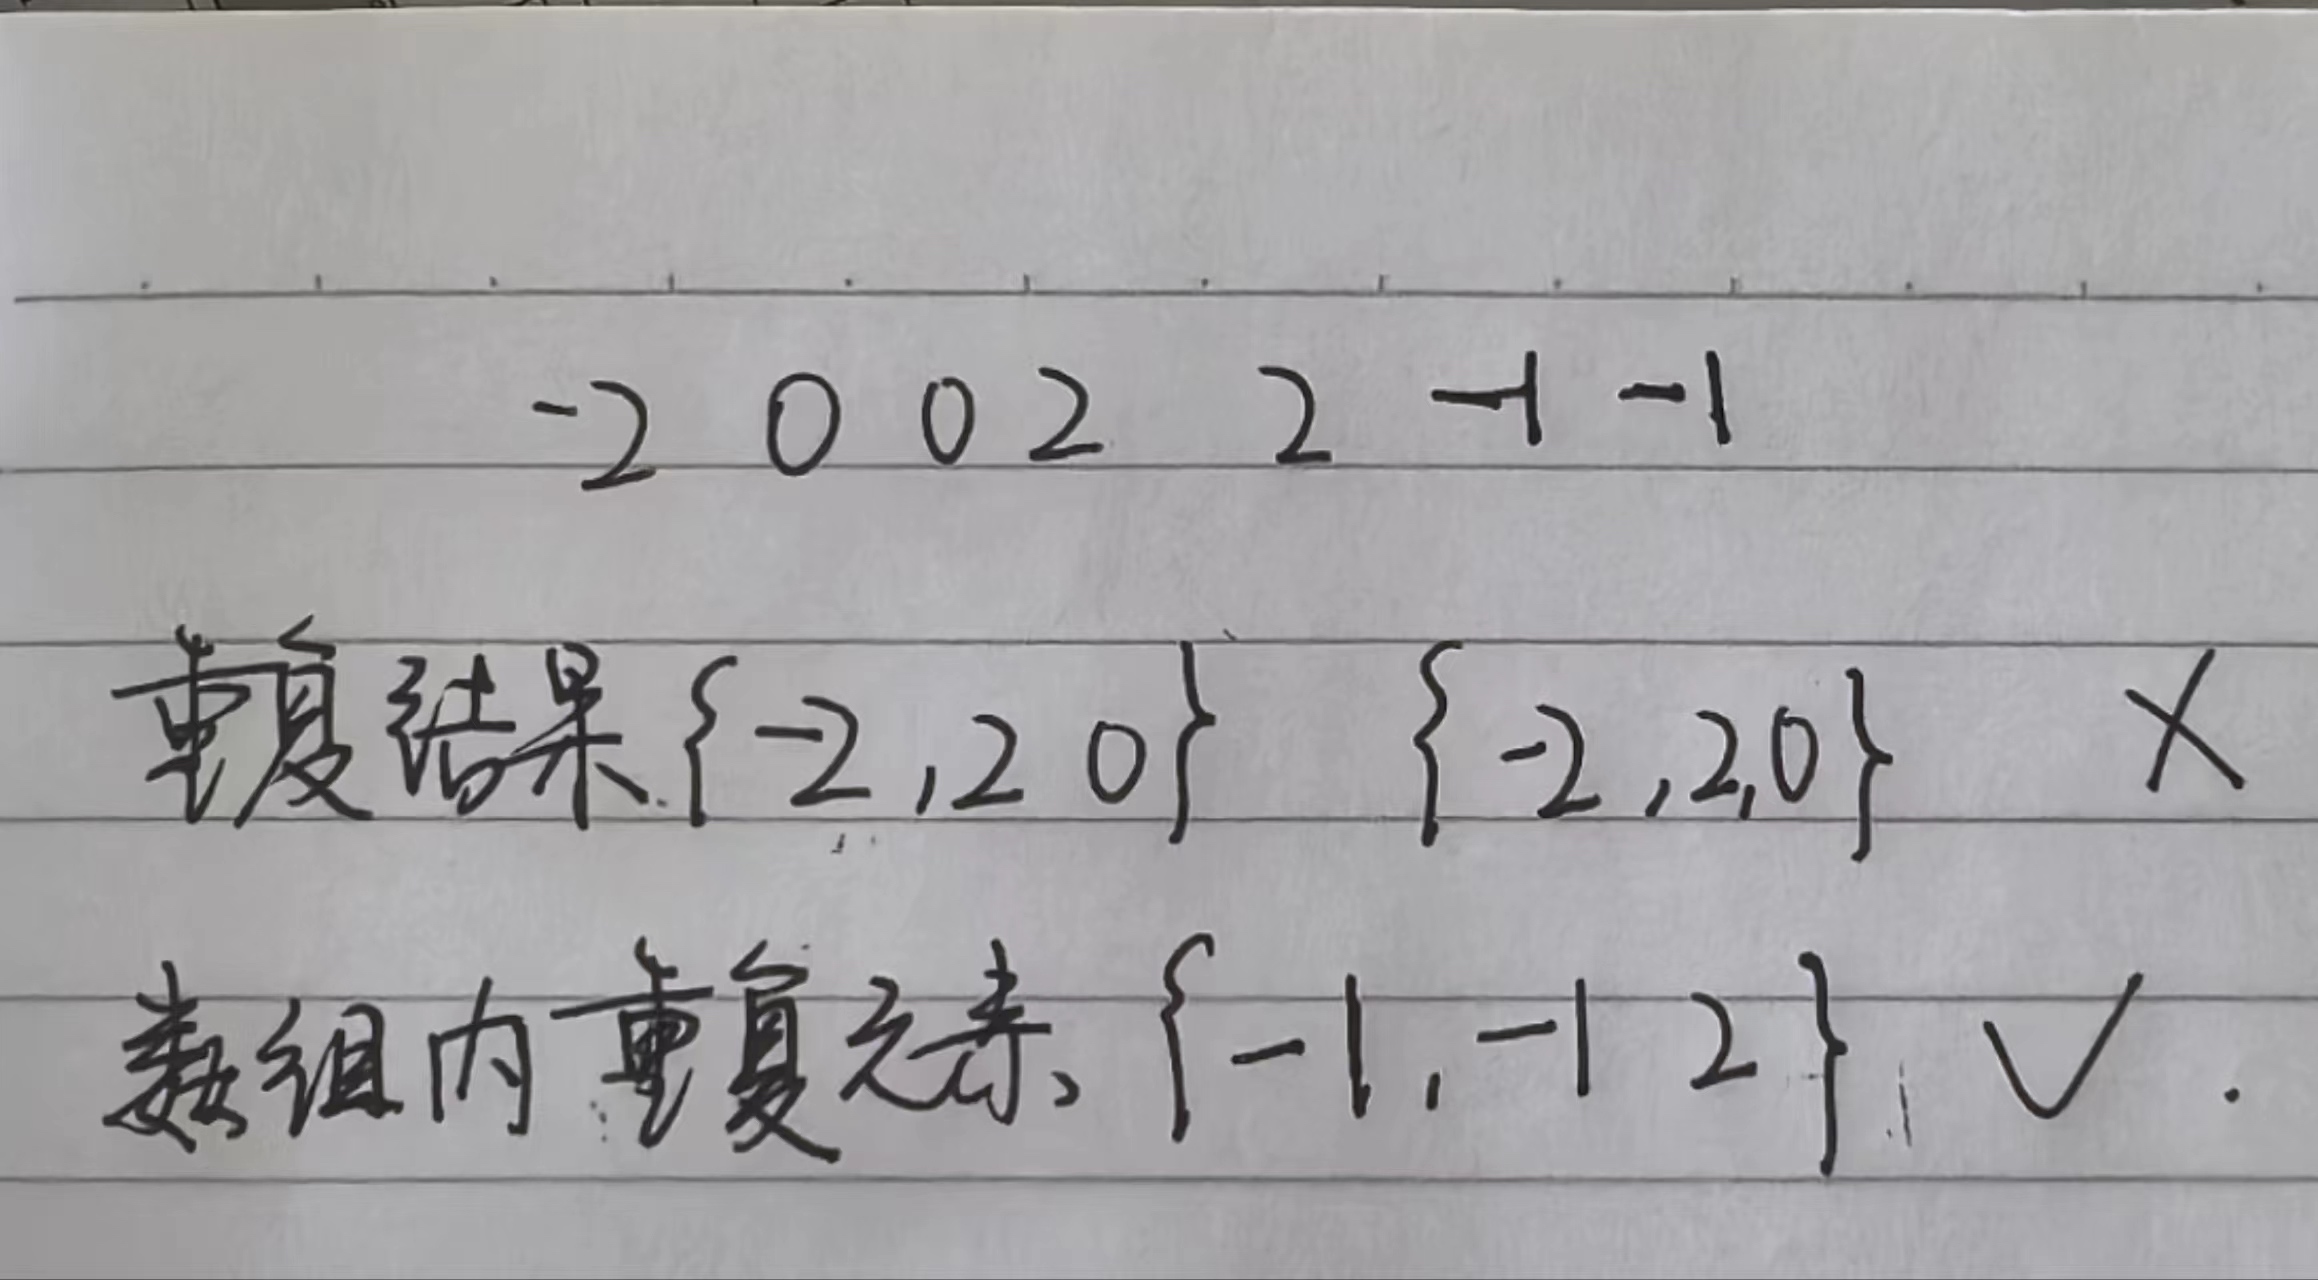 -2 0 0 2 2 -1 -1
重复结果.{-2,2 0} {-2,2,0} ×
数组内重复元素、{-1,-1 2}, √.